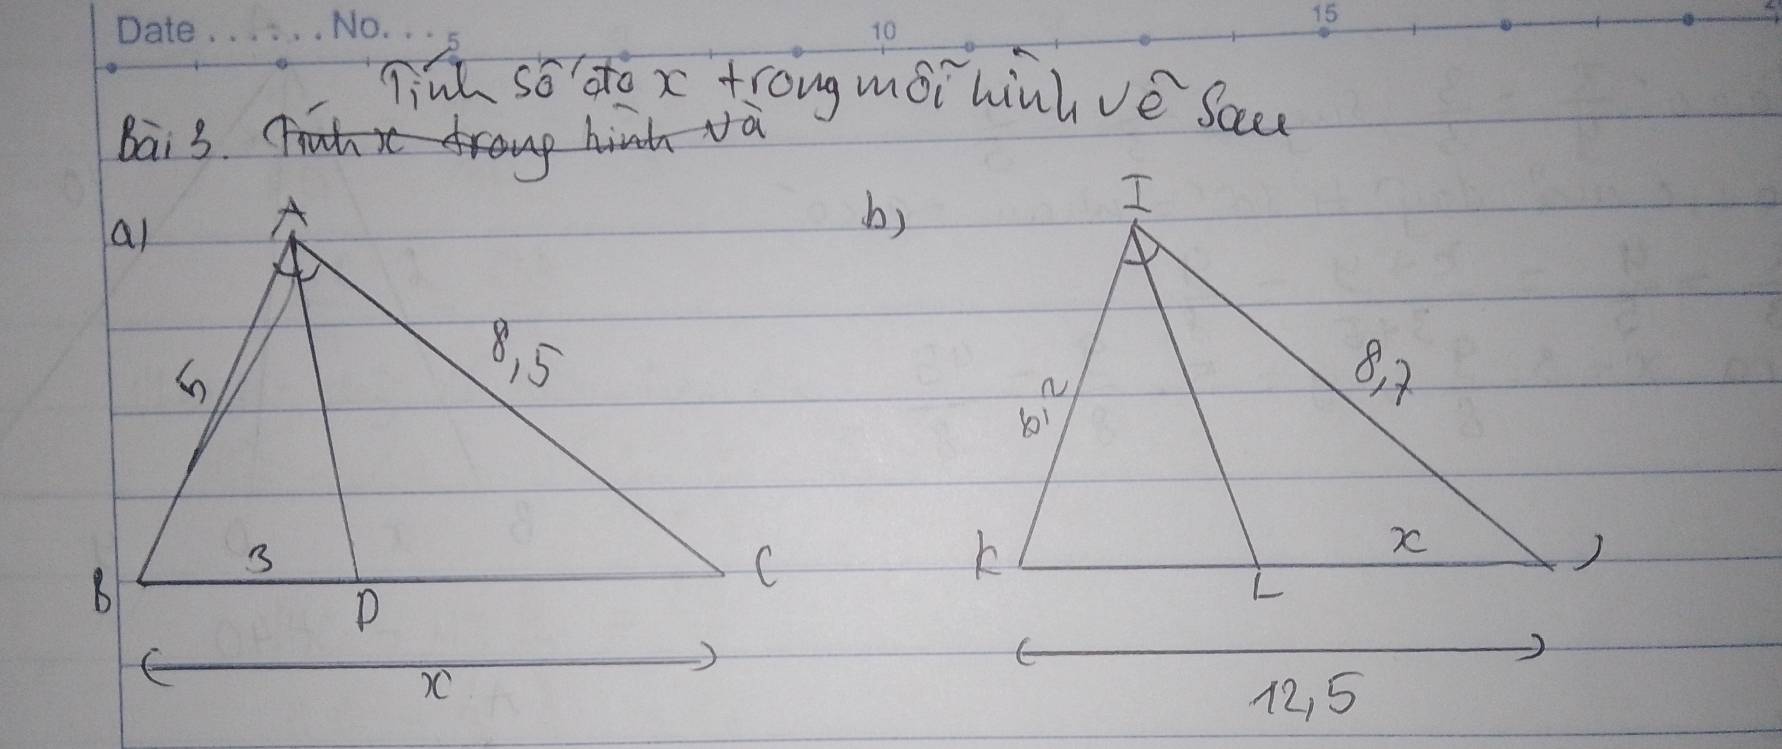 Date ....... No. ...
5 10 15
Tính số đo x trong mỗi hình vẽ sau
Bài 3. Tính x trong hình và
a) A b) I
5 8,5 6,2 8,7
B 3 D C K L x J
x 12,5